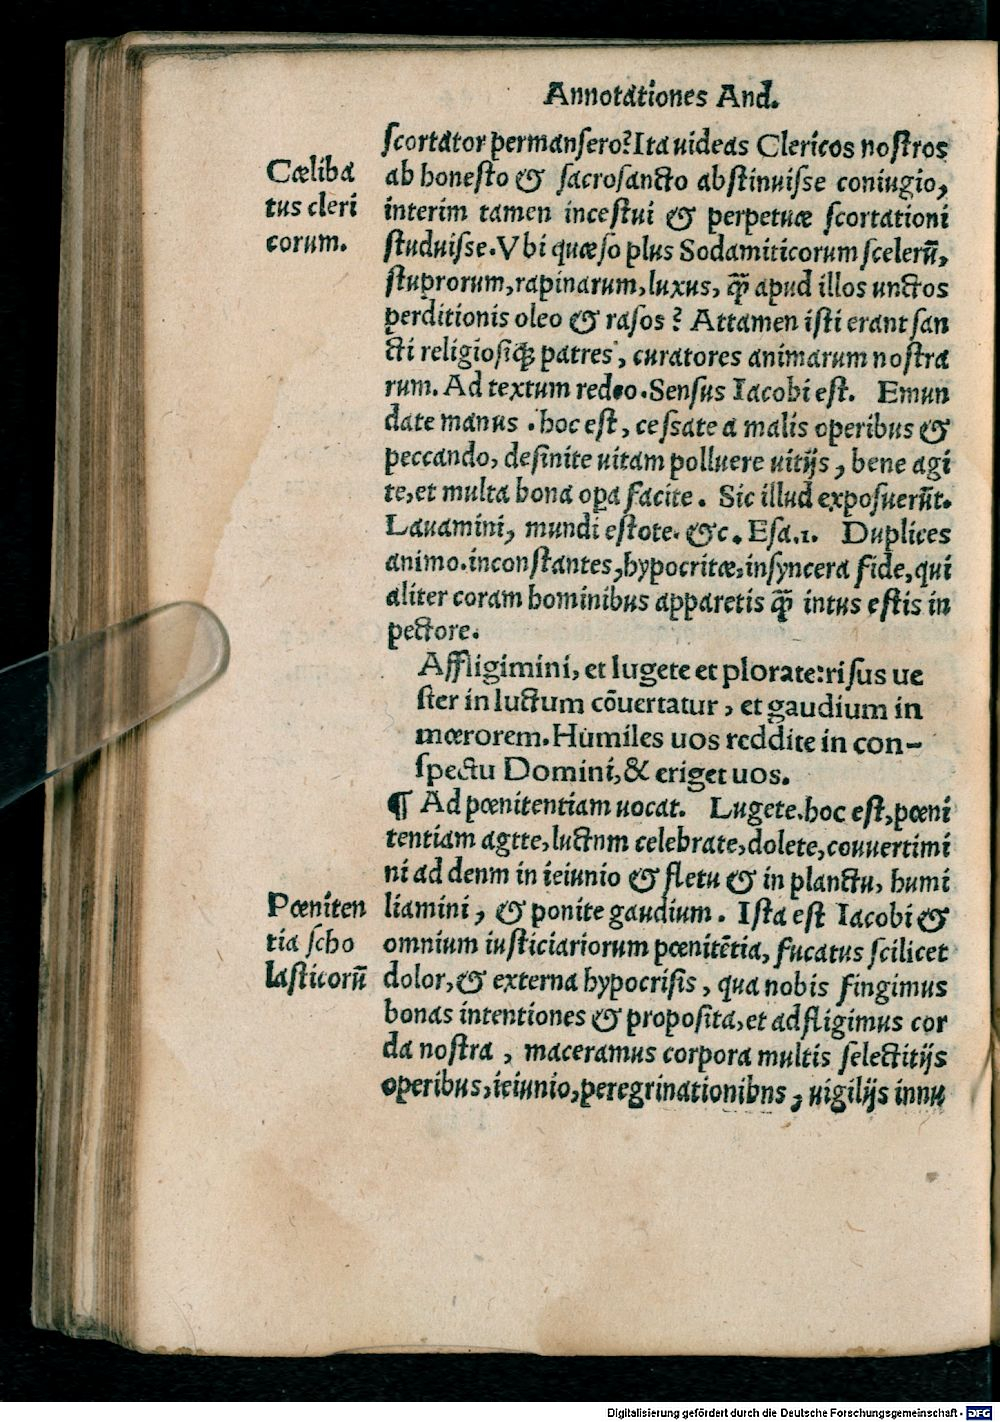 Annotationes And.
Cæliba
tus cleri
corum.
scortator permansero? Ita uideas Clericos nostros
ab honesto & sacrosancto abstinuisse coniugio,
interim tamen incestui & perpetuæ scortationi
studuisse. Vbi quæso plus Sodamiticorum scelerū,
stuprorum, rapinarum, luxus, q̃ apud illos unctos
perditionis oleo & rasos? Attamen isti erant san
cti religiosiq́ꝫ patres, curatores animarum nostra
rum. Ad textum redeo. Sensus Iacobi est. Emun
date manus. hoc est, cessate a malis operibus &
peccando, desinite uitam polluere uitijs, bene agi
te, et multa bona opa facite. Sic illud exposuerūt.
Lauamini, mundi estote. &c. Esa.1. Duplices
animo. inconstantes, hypocritæ, insyncera fide, qui
aliter coram hominibus apparetis q̃ intus estis in
pectore.
Affligimini, et lugete et plorate: risus ue
ster in luctum cōuertatur, et gaudium in
mœrorem. Humiles uos reddite in con-
spectu Domini, & eriget uos.
¶ Ad pœnitentiam uocat. Lugete. hoc est, pœni
tentiam agtte, luctnm celebrate, dolete, couuertimi
ni ad denm in ieiunio & fletu & in planctu, humi
Pœniten
tia scho
lasticorū
liamini, & ponite gaudium. Ista est Iacobi &
omnium iusticiariorum pœnitētia, fucatus scilicet
dolor, & externa hypocrisis, qua nobis fingimus
bonas intentiones & proposita, et adfligimus cor
da nostra, maceramus corpora multis selectitijs
operibus, ieiunio, peregrinationibns, uigilijs innu
Digitalisierung gefördert durch die Deutsche Forschungsgemeinschaft - DFG